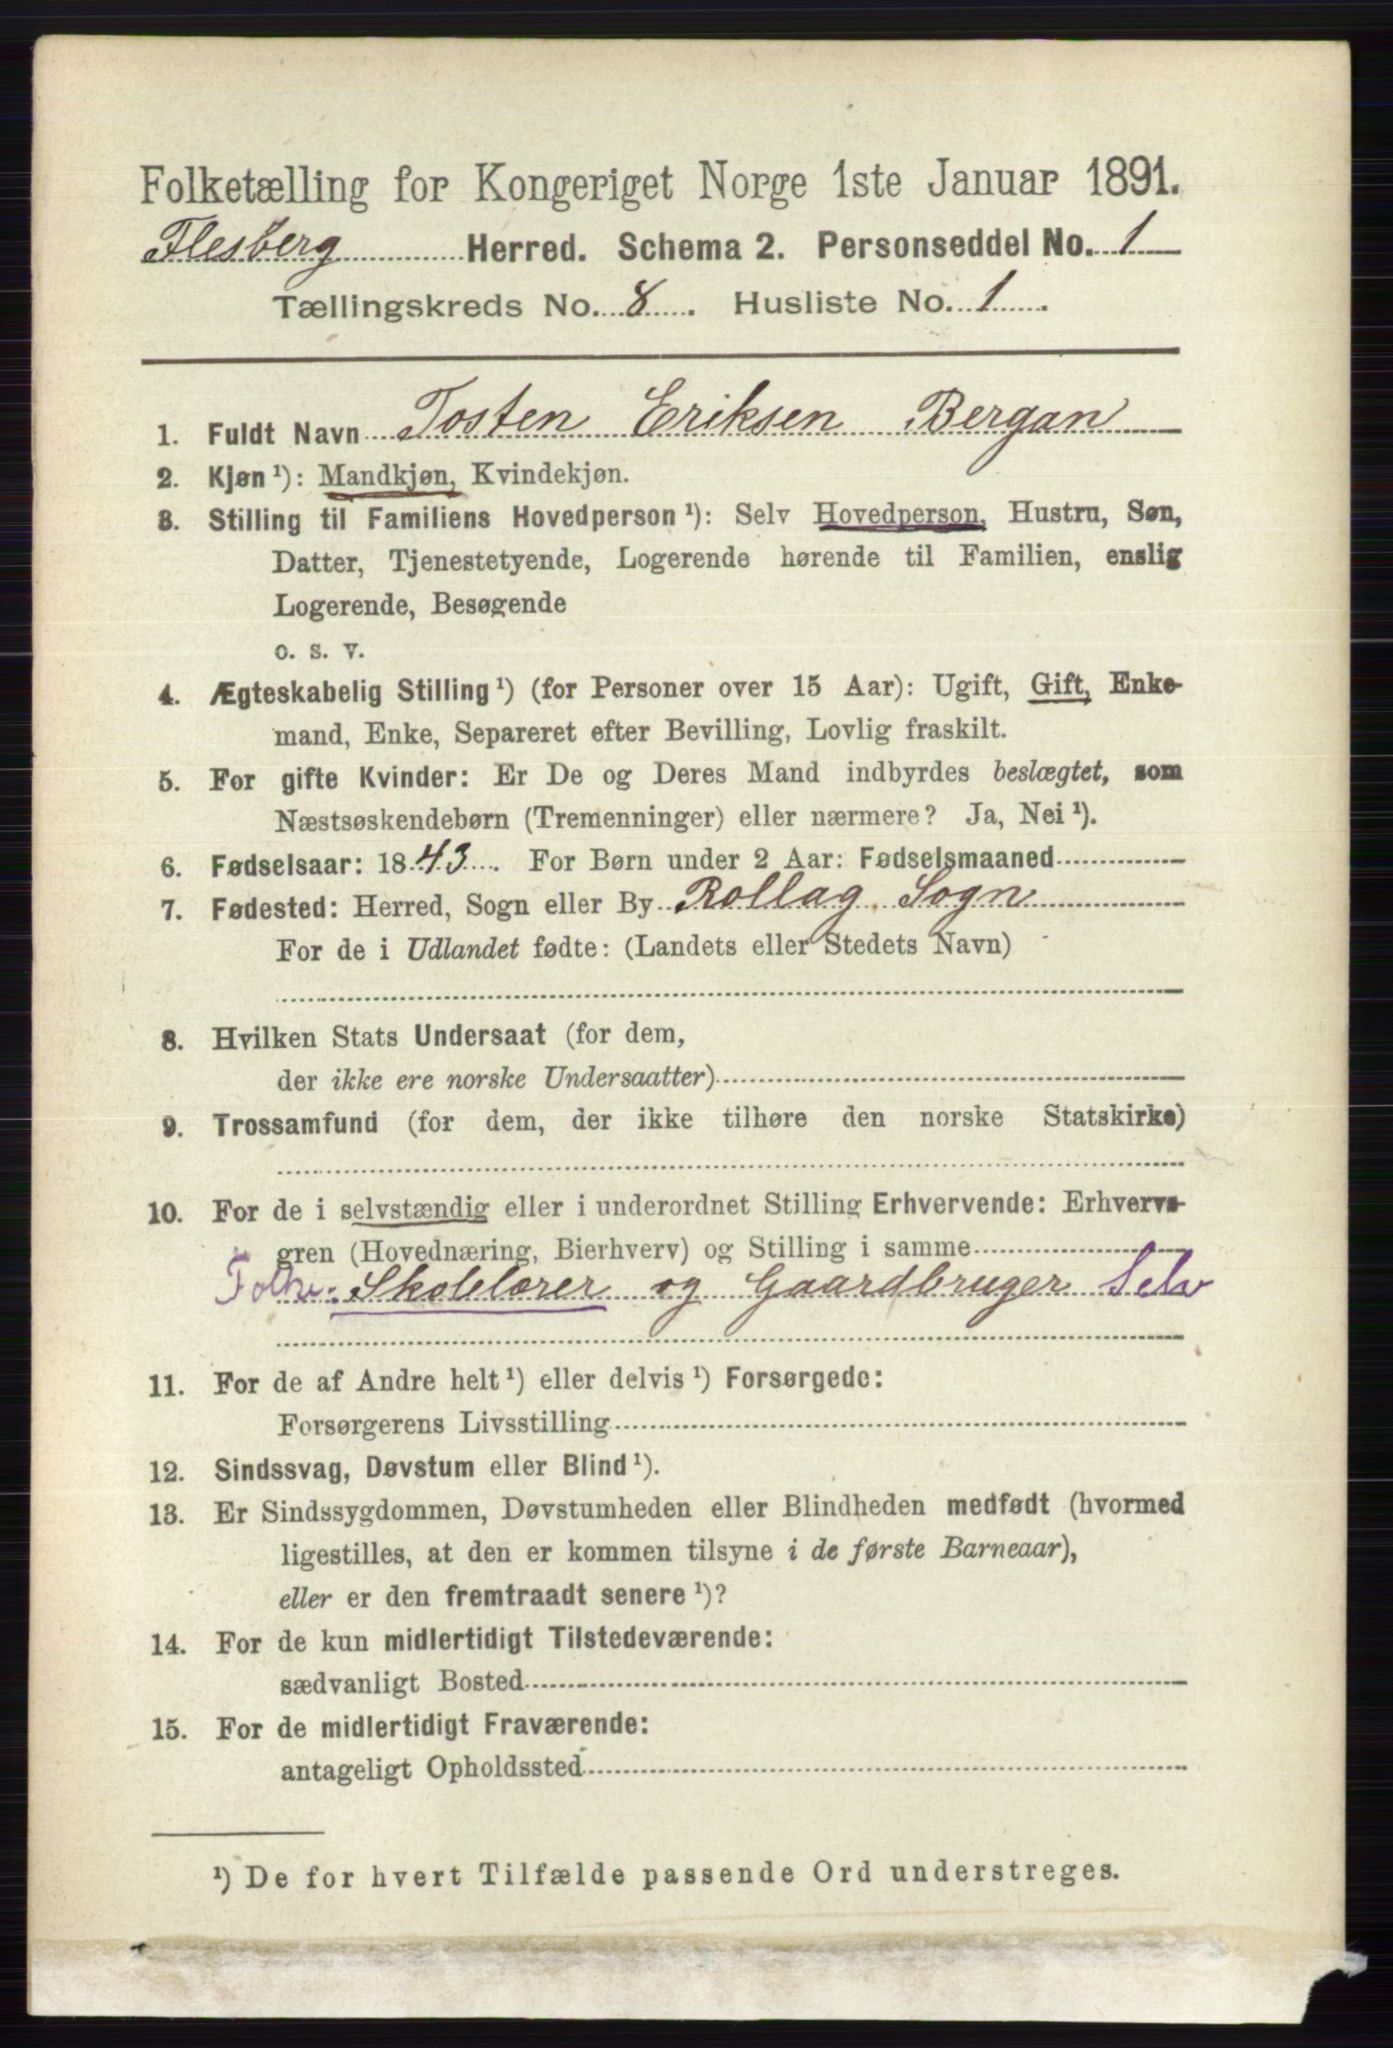 Folketælling for Kongeriget Norge 1ste Januar 1891.
Flesberg Herred. Schema 2. Personseddel No. 1
Tællingskreds No. 8. Husliste No. 1.
1. Fuldt Navn Tosten Eriksen Bergan
2. Kjøn ¹): Mandkjøn, Kvindekjøn.
3. Stilling til Familiens Hovedperson ¹): Selv Hovedperson, Hustru, Søn,
Datter, Tjenestetyende, Logerende hørende til Familien, enslig
Logerende, Besøgende
o. s. v.
4. Ægteskabelig Stilling ¹) (for Personer over 15 Aar): Ugift, Gift, Enke-
mand, Enke, Separeret efter Bevilling, Lovlig fraskilt.
5. For gifte Kvinder: Er De og Deres Mand indbyrdes beslægtet, som
Næstsøskendebørn (Tremenninger) eller nærmere? Ja, Nei ¹).
6. Fødselsaar: 1843. For Børn under 2 Aar: Fødselsmaaned
7. Fødested: Herred, Sogn eller By Rollag Sogn
For de i Udlandet fødte: (Landets eller Stedets Navn)
8. Hvilken Stats Undersaat (for dem,
der ikke ere norske Undersaatter)
9. Trossamfund (for dem, der ikke tilhøre den norske Statskirke)
10. For de i selvstændig eller i underordnet Stilling Erhvervende: Erhvervs-
gren (Hovednæring, Bierhverv) og Stilling i samme
Folke: Skolelærer og Gaardbruger Selv
11. For de af Andre helt ¹) eller delvis ¹) Forsørgede:
Forsørgerens Livsstilling
12. Sindssvag, Døvstum eller Blind ¹).
13. Er Sindssygdommen, Døvstumheden eller Blindheden medfødt (hvormed
ligestilles, at den er kommen tilsyne i de første Barneaar),
eller er den fremtraadt senere ¹)?
14. For de kun midlertidigt Tilstedeværende:
sædvanligt Bosted
15. For de midlertidigt Fraværende:
antageligt Opholdssted
¹) De for hvert Tilfælde passende Ord understreges.